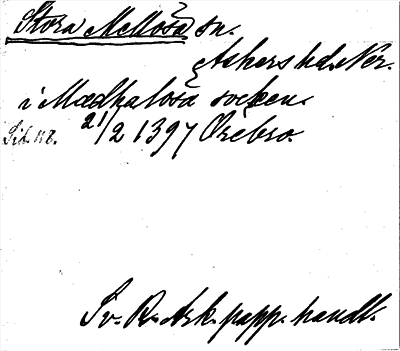 Stora Mellösa sn.
Askers hd. När.
i Mædhalösa soken.
21/2 1397 Örebro.
Sv. R. Ark. papp. handl.